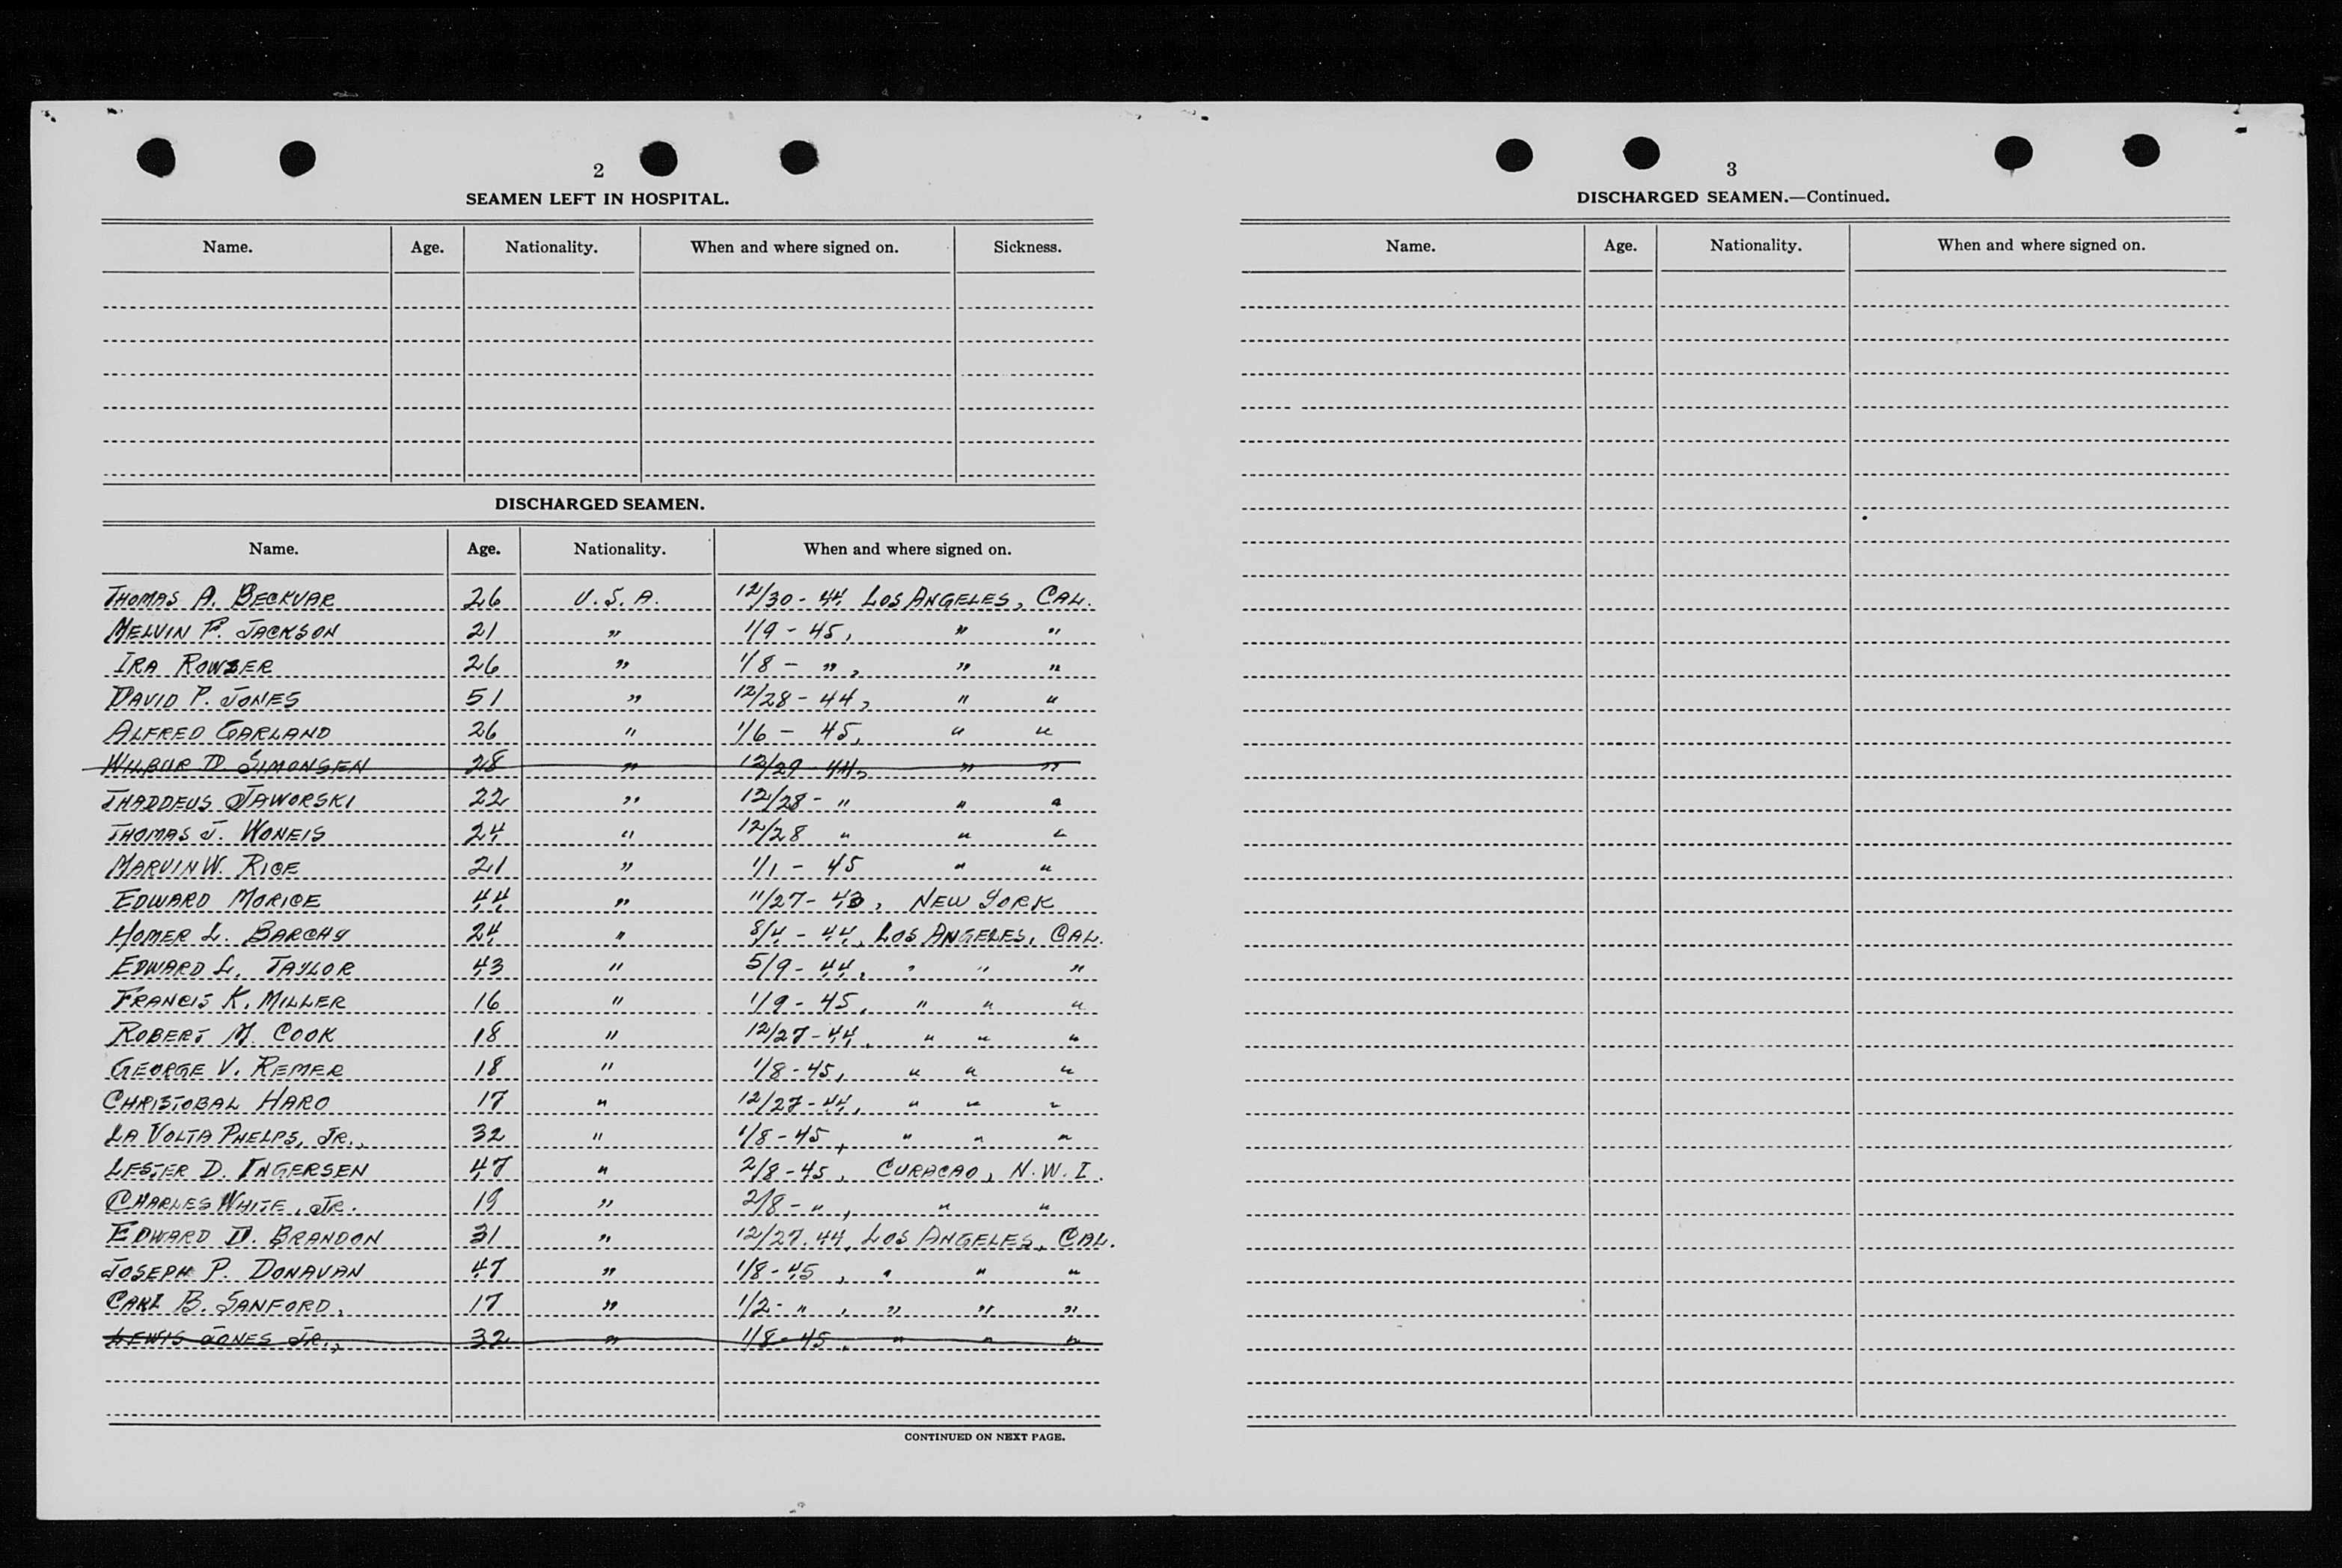 2
SEAMEN LEFT IN HOSPITAL.
Name. Age. Nationality. When and where signed on. Sickness.
DISCHARGED SEAMEN.
Name. Age. Nationality. When and where signed on.
THOMAS A. BECKVAR 26 U.S.A. 12/30-44, LOS ANGELES, CAL.
MELVIN P. JACKSON 21 " 1/9-45, " "
IRA ROWSER 26 " 1/8-", " "
DAVID P. JONES 51 " 12/28-44, " "
ALFRED GARLAND 26 " 1/6-45, " "
WILBUR D. SIMONSEN 28 " 12/29-44, " "
THADDEUS JAWORSKI 22 " 12/28-" " "
THOMAS J. WONEIS 24 " 12/28 " " "
MARVIN W. RICE 21 " 1/1-45 " "
EDWARD MORICE 44 " 11/27-43, NEW YORK
HOMER L. BARCHY 24 " 8/4-44, LOS ANGELES, CAL.
EDWARD L. TAYLOR 43 " 5/9-44, " " "
FRANCIS K. MILLER 16 " 1/9-45, " " "
ROBERT M. COOK 18 " 12/27-44, " " "
GEORGE V. REMER 18 " 1/8-45, " " "
CHRISTOBAL HARO 17 " 12/27-44, " " "
LA VOLTA PHELPS, JR., 32 " 1/8-45, " " "
LESTER D. INGERSEN 47 " 2/8-45, CURACAO, N.W.I.
CHARLES WHITE, JR. 19 " 2/8-", " "
EDWARD D. BRANDON 31 " 12/27.44, LOS ANGELES, CAL.
JOSEPH P. DONAVAN 47 " 1/8-45, " " "
CARL B. SANFORD, 17 " 1/2-", " " "
LEWIS JONES JR., 32 " 1/8-45, " " "
CONTINUED ON NEXT PAGE.
3
DISCHARGED SEAMEN.—Continued.
Name. Age. Nationality. When and where signed on.